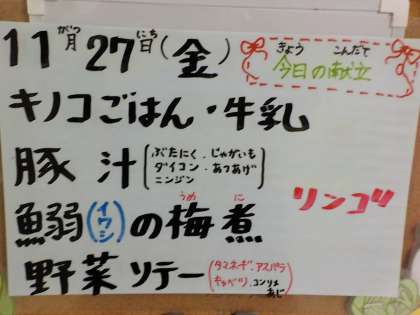 11月27日(金)
がつ にち
きょう こんだて
今日の献立
キノコごはん・牛乳
豚汁(ぶたにく・じゃがいも
ダイコン・あつあげ
ニンジン)
リンゴ
鰯(イワシ)の梅煮
うめ に
野菜ソテー(タマネギ・アスパラ
キャベツ・コンソメ
あじ)